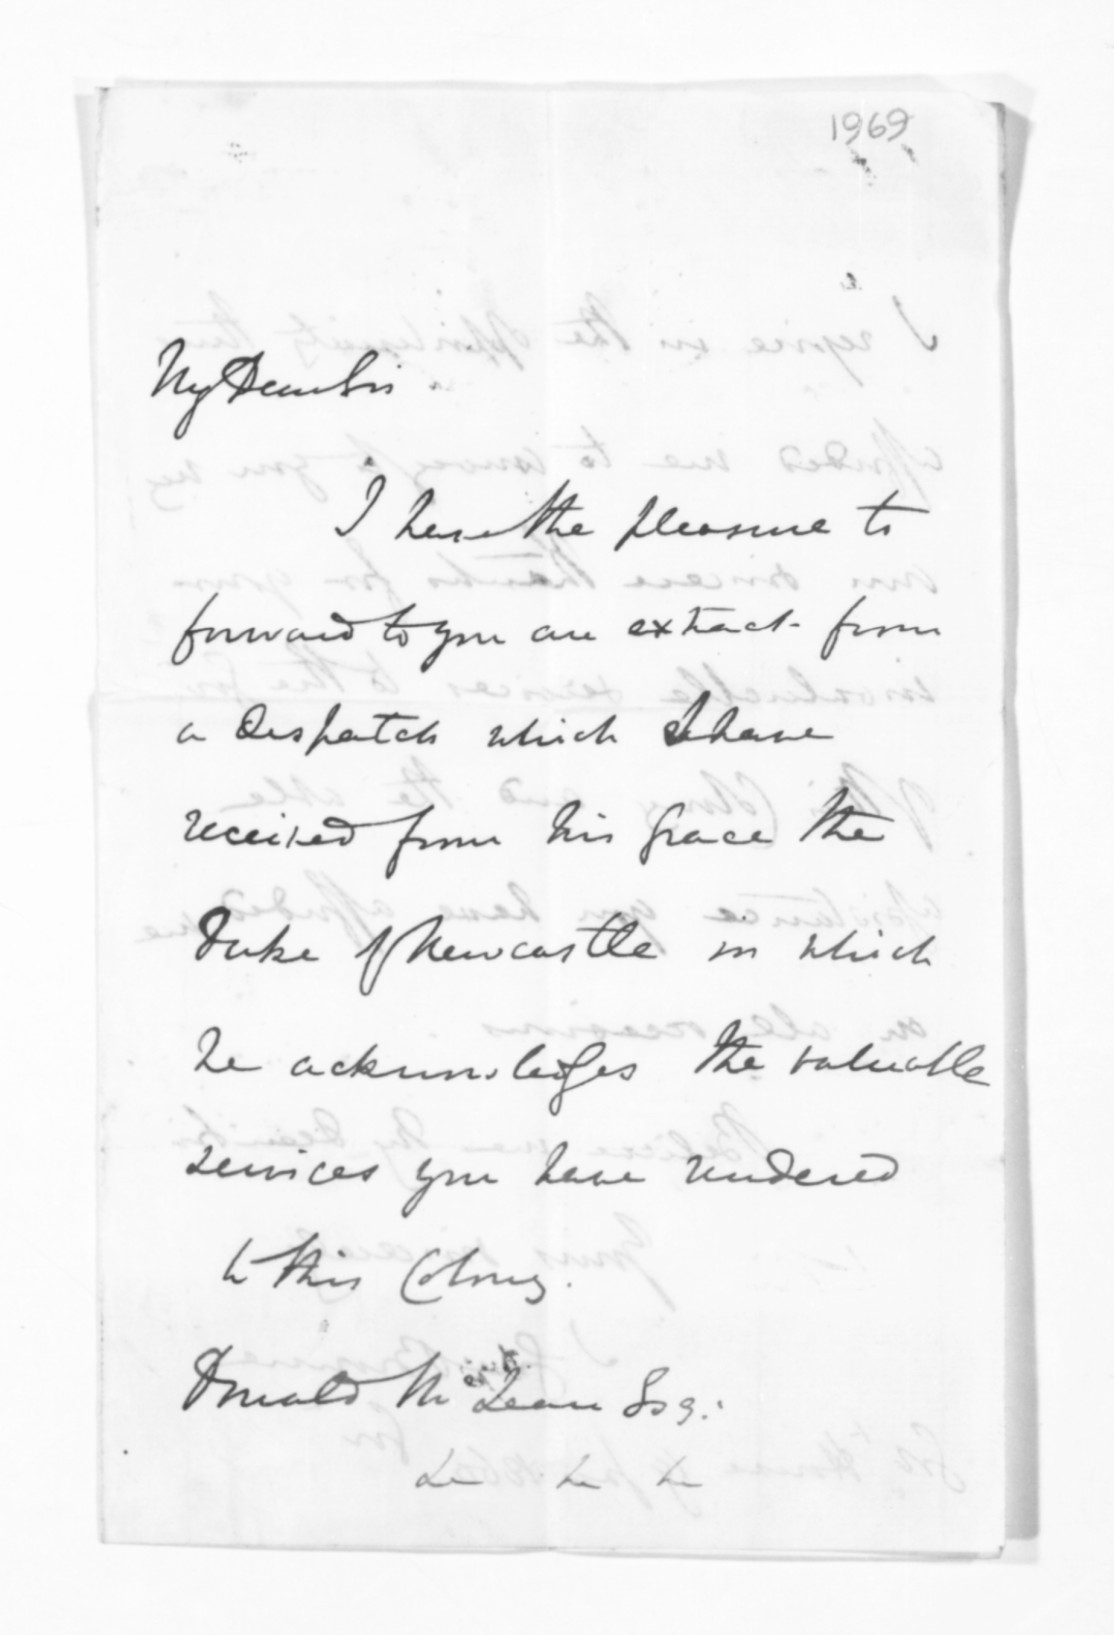 1969
My Dear Sir
I have the pleasure to
forward to you an extract from
a Despatch which I have
received from his Grace the
Duke of Newcastle in which
he acknowledges the valuable
services you have rendered
to this Colony.
Donald McLean Esq:
&c &c &c